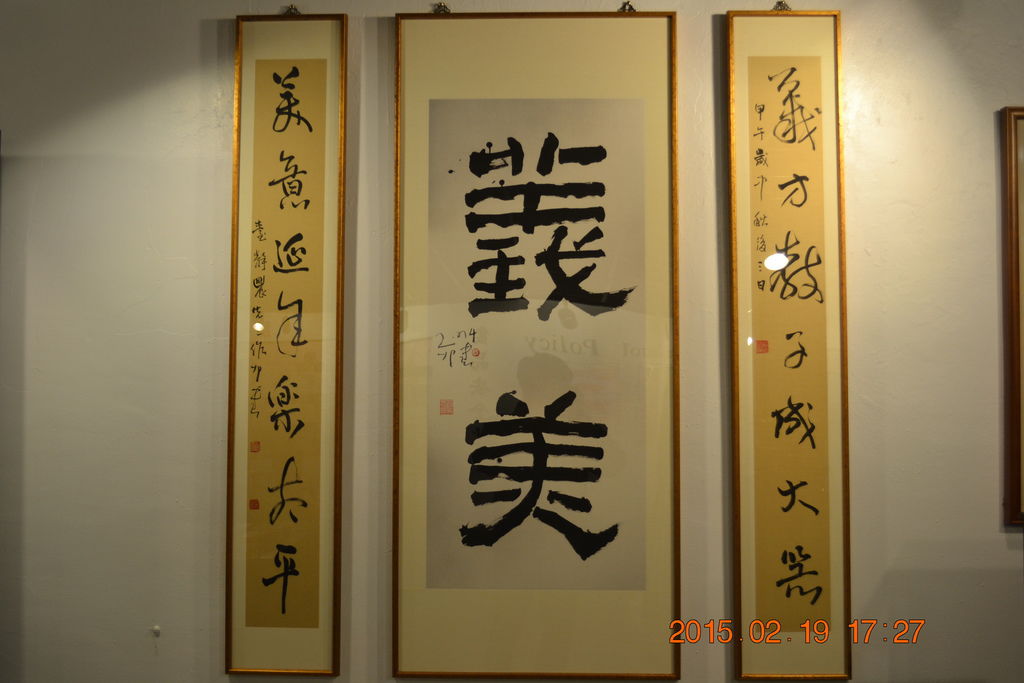 義方教子成大器
甲午歲中秋後三日
義美
2014
美意延年樂太平
臺靜農先生作
Policy
2015.02.19 17:27